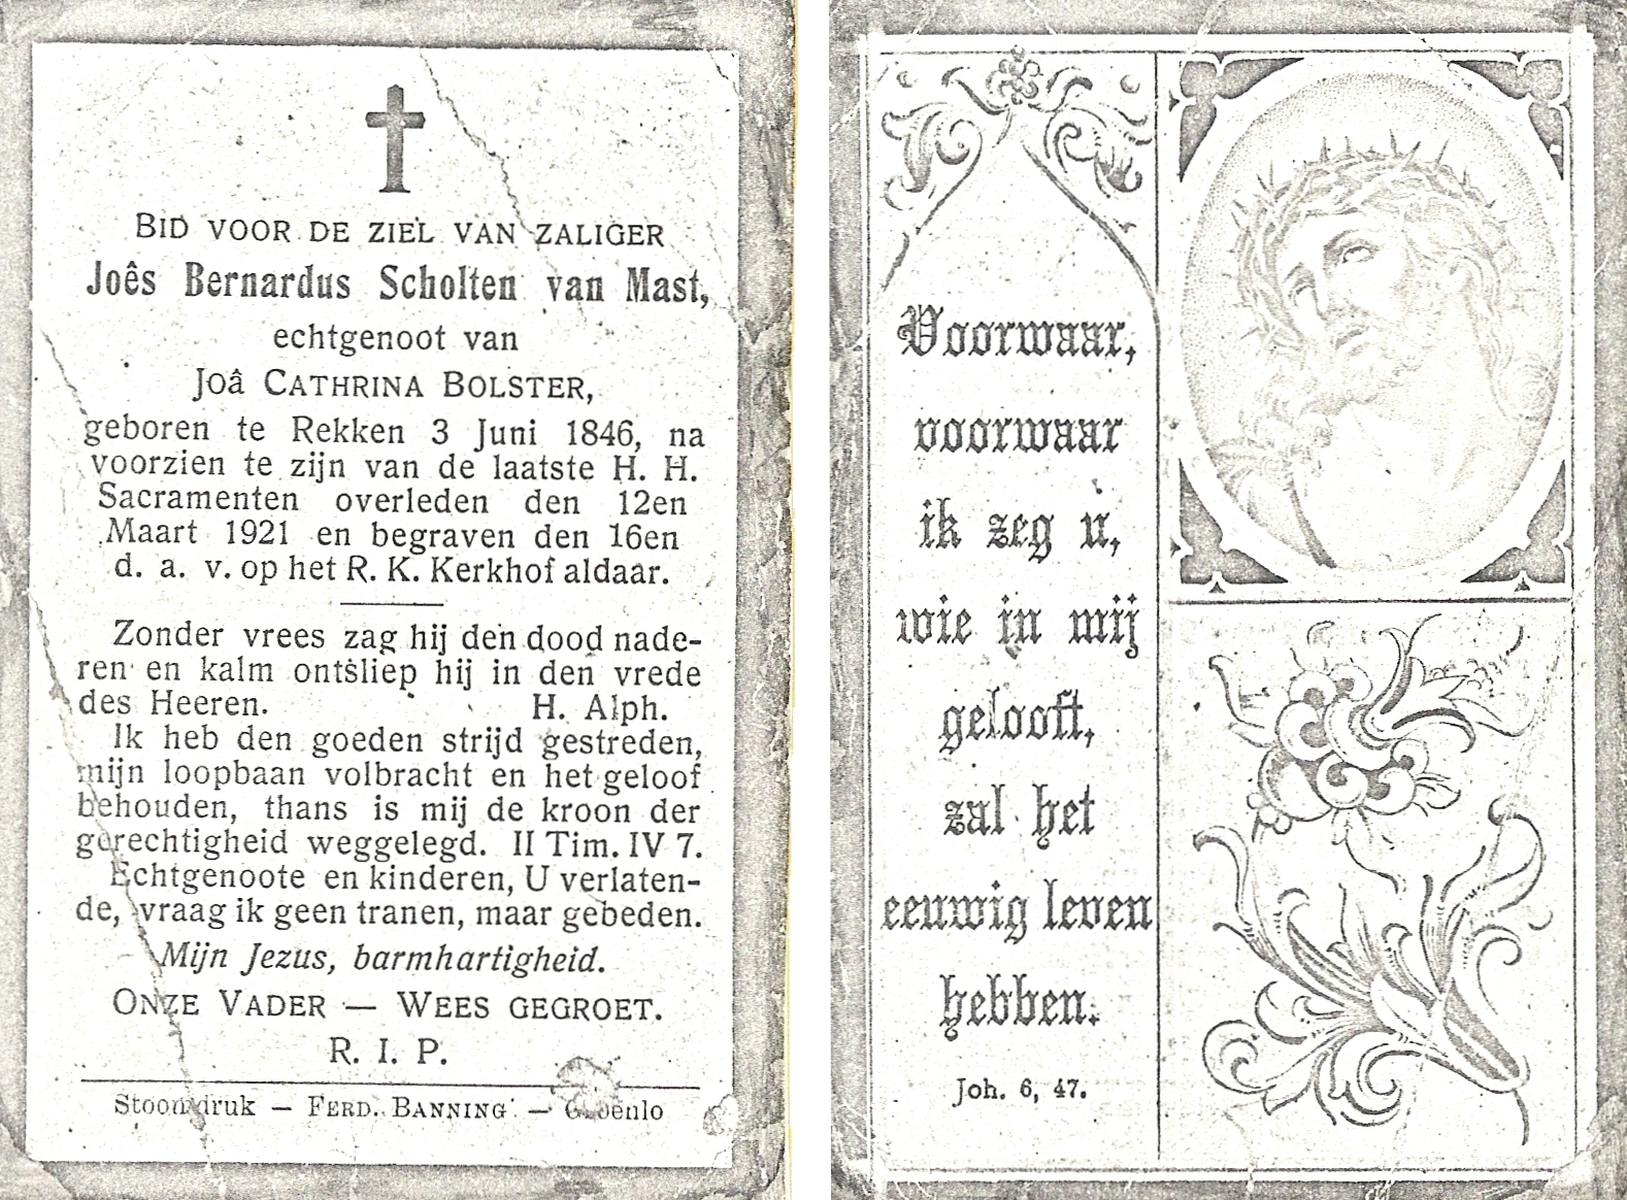 BID VOOR DE ZIEL VAN ZALIGER
Joês Bernardus Scholten van Mast,
echtgenoot van
JOÂ CATHRINA BOLSTER,
geboren te Rekken 3 Juni 1846, na
voorzien te zijn van de laatste H. H.
Sacramenten overleden den 12en
Maart 1921 en begraven den 16en
d. a. v. op het R. K. Kerkhof aldaar.
Zonder vrees zag hij den dood nade-
ren en kalm ontsliep hij in den vrede
des Heeren. H. Alph.
Ik heb den goeden strijd gestreden,
mijn loopbaan volbracht en het geloof
behouden, thans is mij de kroon der
gerechtigheid weggelegd. II Tim. IV 7.
Echtgenoote en kinderen, U verlaten-
de, vraag ik geen tranen, maar gebeden.
Mijn Jezus, barmhartigheid.
ONZE VADER — WEES GEGROET.
R. I. P.
Stoomdruk — FERD. BANNING — Groenlo
Voorwaar,
voorwaar
ik zeg u,
wie in mij
gelooft,
zal het
eeuwig leven
hebben.
Joh. 6, 47.